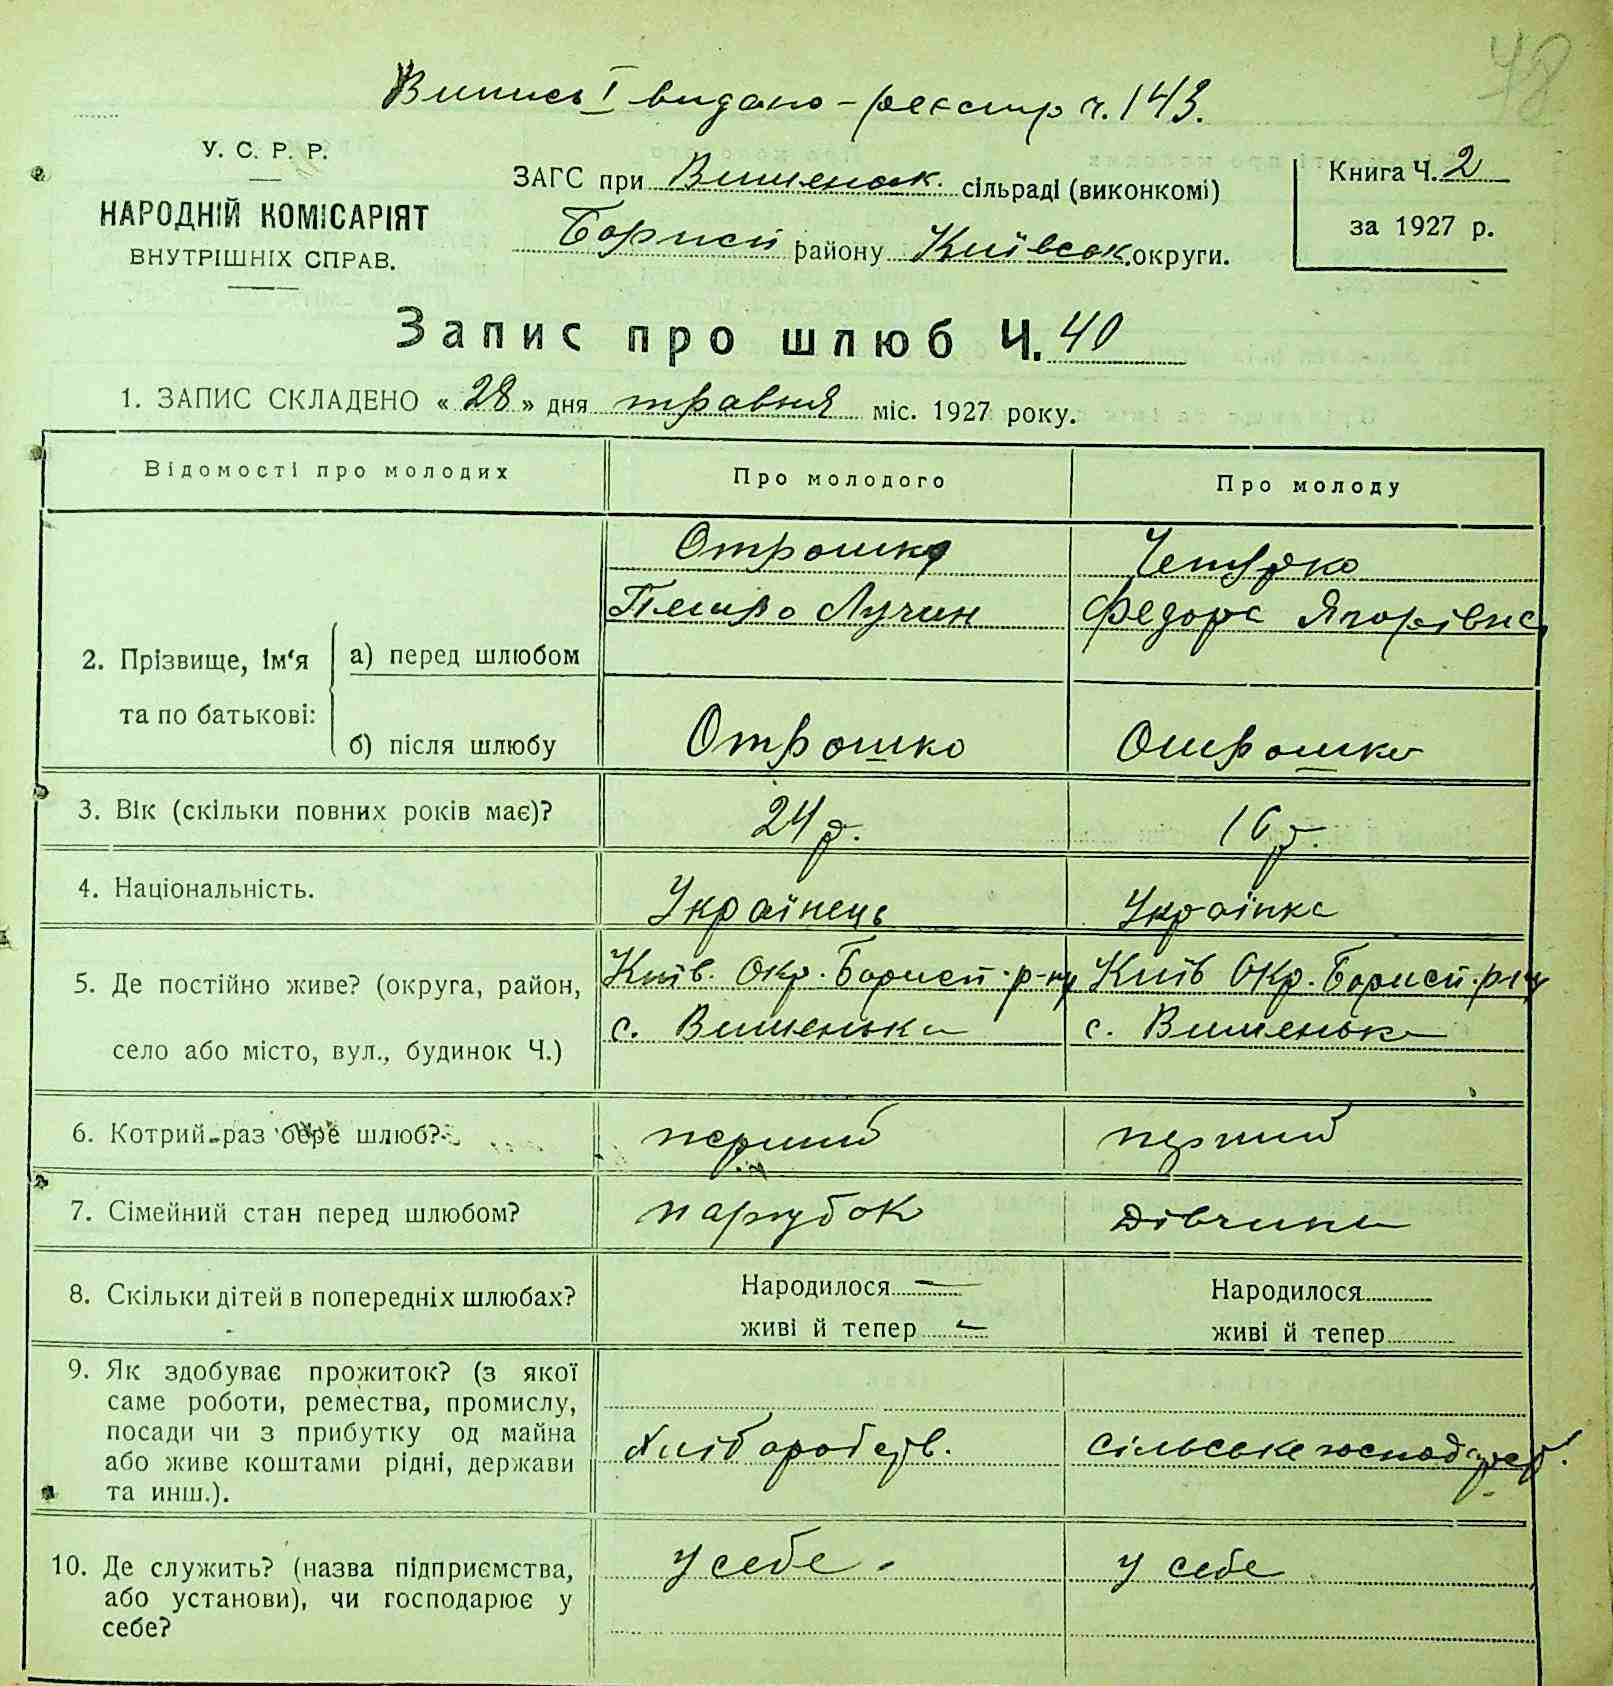 48
Випись I видано - реєстр ч. 143.
У. С. Р. Р.
НАРОДНІЙ КОМІСАРІЯТ
ВНУТРІШНІХ СПРАВ.
ЗАГС при Вишеньок. сільраді (виконкомі)
Борисп району Київськ. округи.
Книга Ч. 2
за 1927 р.
Запис про шлюб Ч. 40
1. ЗАПИС СКЛАДЕНО « 28 » дня травня міс. 1927 року.
Відомості про молодих Про молодого Про молоду
Отрошко
Петро Лучин Федора Ягорівна
2. Прізвище, Ім'я та по батькові:
а) перед шлюбом
б) після шлюбу Отрошко Отрошко
3. Вік (скільки повних років має)? 24 р. 16 р.
4. Національність. Українець Українка
5. Де постійно живе? (округа, район, Київ. Окр. Борисп. р-ну Київ Окр. Борисп. р-ну
село або місто, вул., будинок Ч.) с. Вишеньки с. Вишеньки
6. Котрий раз бере шлюб? перший перший
7. Сімейний стан перед шлюбом? парубок дівчина
8. Скільки дітей в попередніх шлюбах? Народилося — Народилося
живі й тепер — живі й тепер
9. Як здобуває прожиток? (з якої
саме роботи, ремества, промислу,
посади чи з прибутку од майна
або живе коштами рідні, держави
та инш.).
Хліборобств. Сільське
10. Де служить? (назва підприємства, у себе - у себе
або установи), чи господарює у
себе?